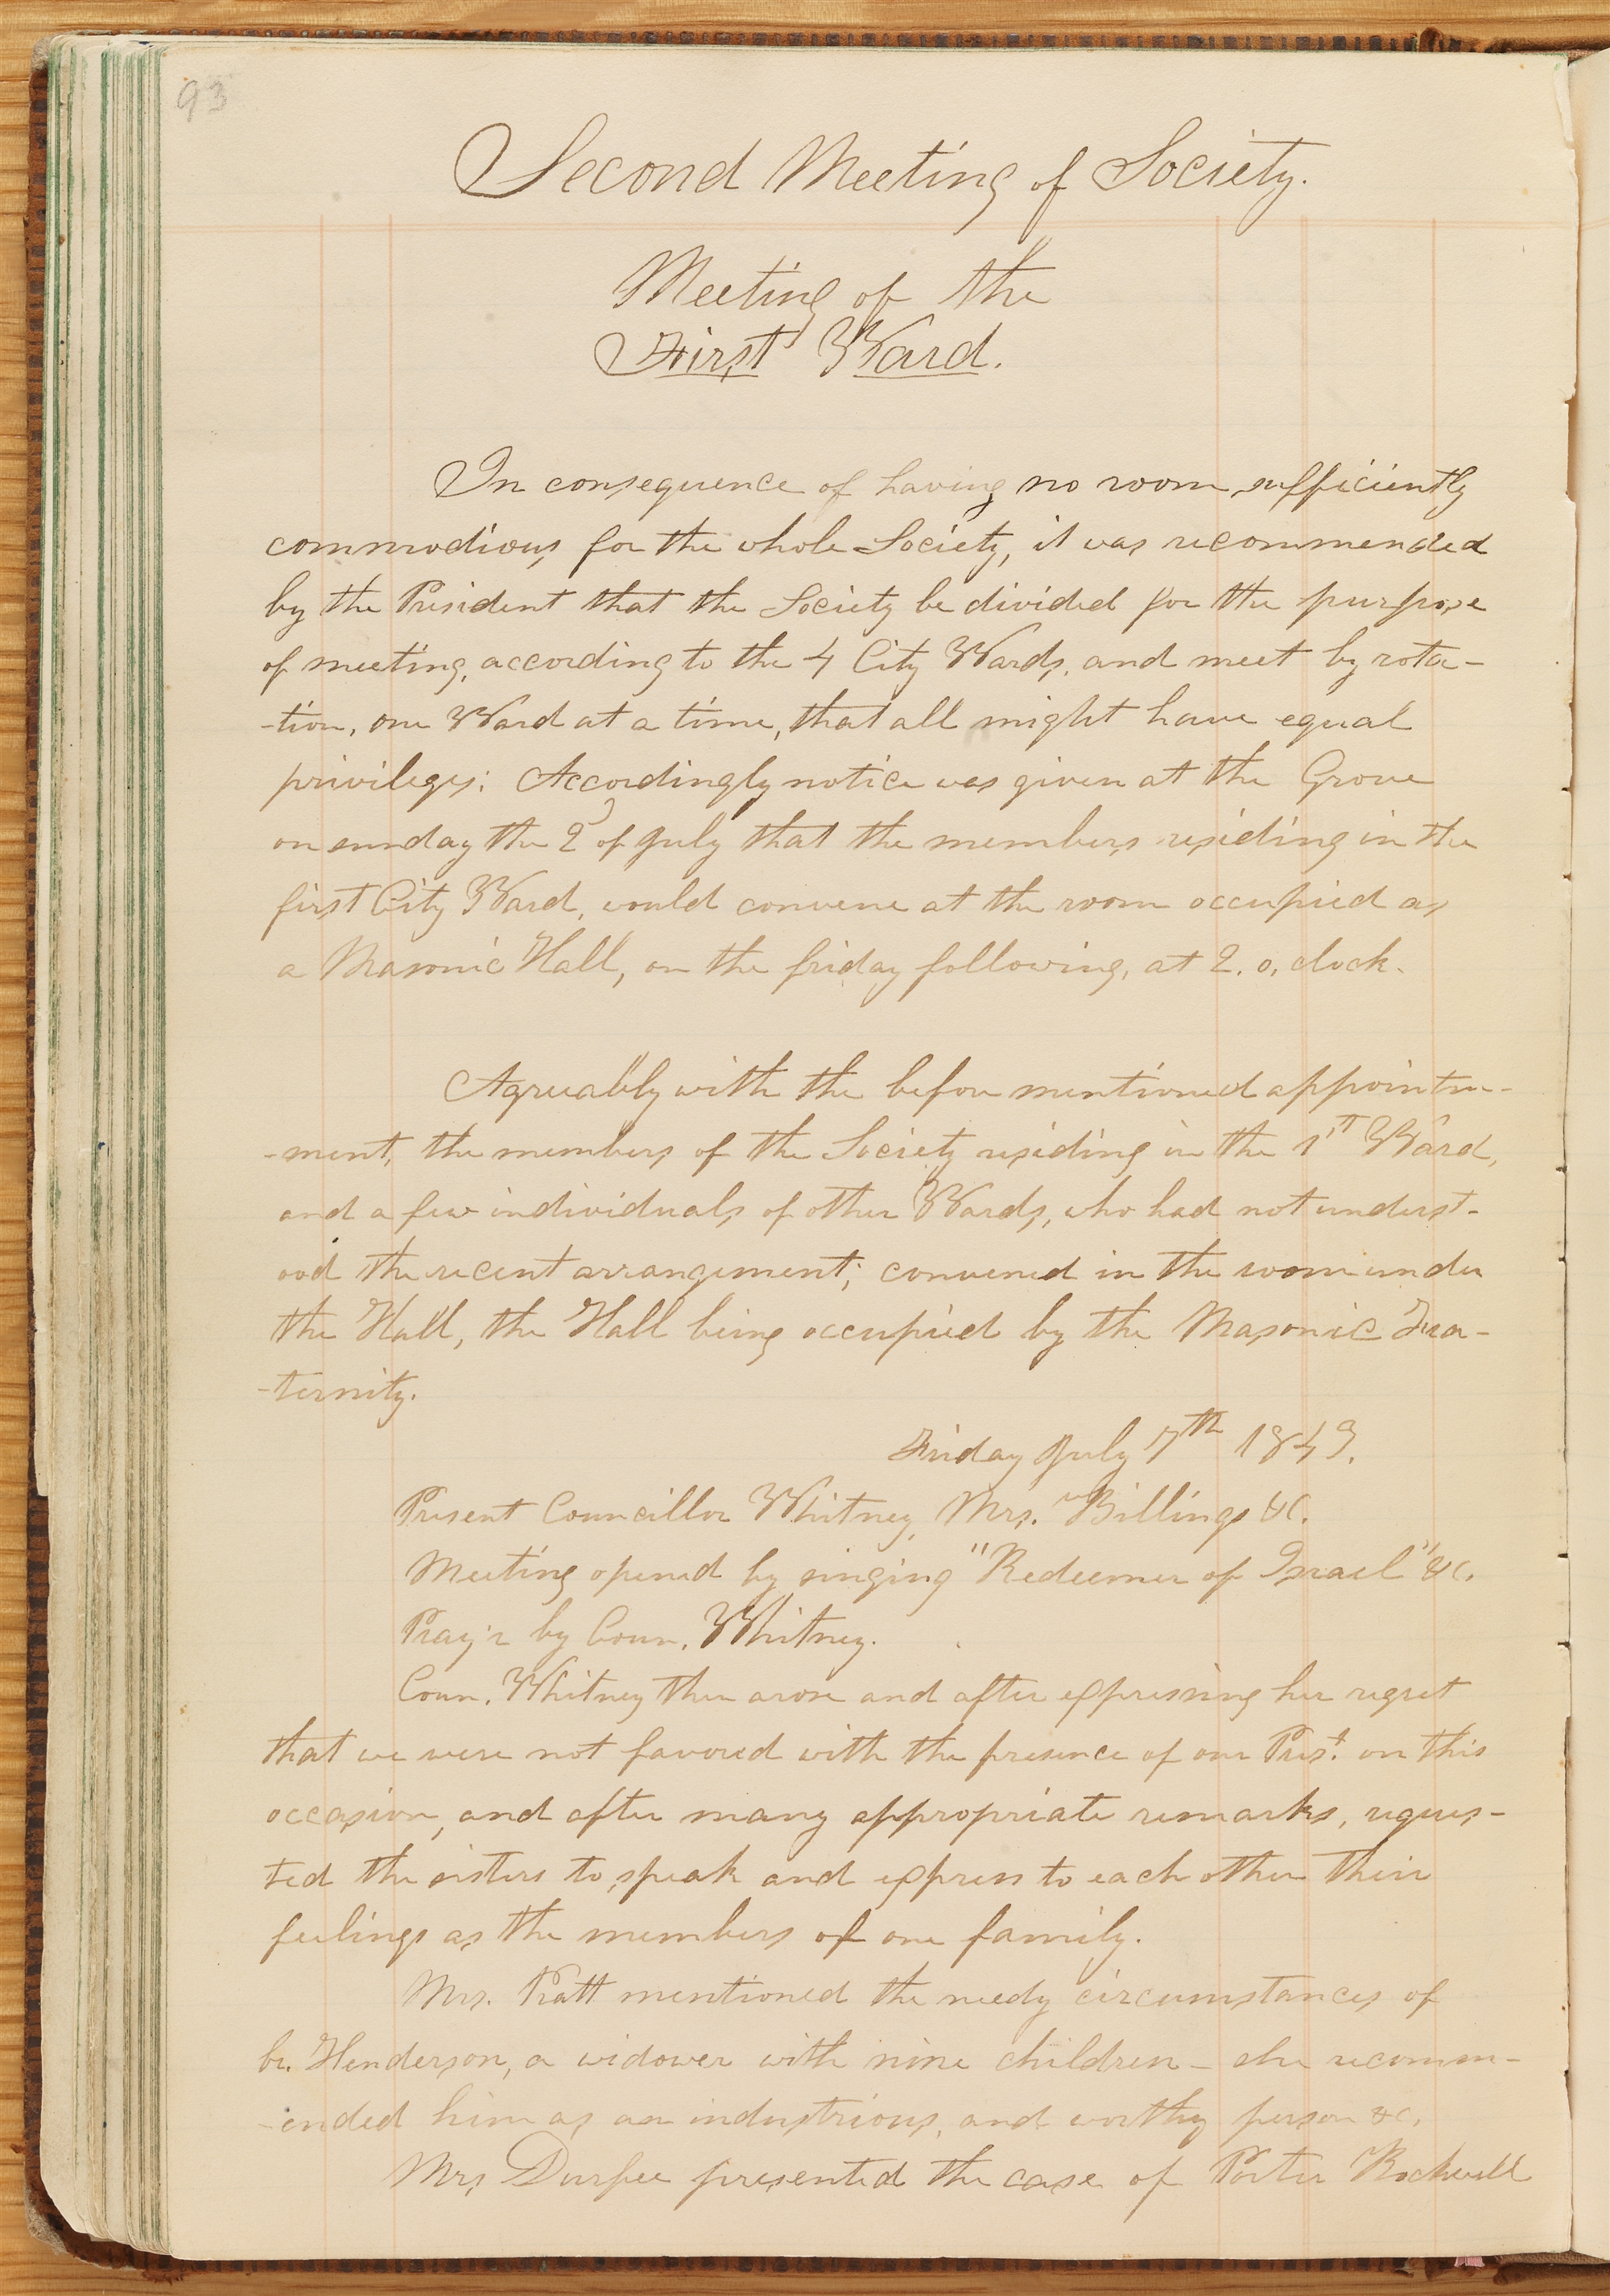 93
Second Meeting of Society.
Meeting of the
First Ward.
In consequence of having no room sufficiently
commodious, for the whole Society, it was recommended
by the President that the Society be divided for the purpose
of meeting, according to the 4 City Wards, and meet by rota-
-tion, one Ward at a time, that all might have equal
privileges: Accordingly notice was given at the Grove
on sunday the 2d of July that the members residing in the
first City Ward, would convene at the room occupied as
a Masonic Hall, on the friday following, at 2. o, clock.
Agreeably with the before mentioned appointm-
-ment, the members of the Society residing in the 1st Ward,
and a few individuals of other Wards, who had not underst-
ood the recent arrangement; convened in the room under
the Hall, the Hall being occupied by the Masonic Fra-
-ternity.
Friday July 7th 1843.
Present Councillor Whitney, Mrs. Billings &c.
Meeting opened by singing "Redeemer of Israel" &c.
Pray'r by Coun. Whitney.
Coun. Whitney then arose and after expressing her regret
that we were not favored with the presence of our Prest. on this
occasion, and after many appropriate remarks, reques-
ted the sisters to speak and express to each other their
feelings as the members of one family.
Mrs. Pratt mentioned the needy circumstances of
br. Henderson, a widower with nine children - she recomm-
-ended him as an industrious, and worthy person &c.
Mrs Durfee presented the case of Porter Rockwell